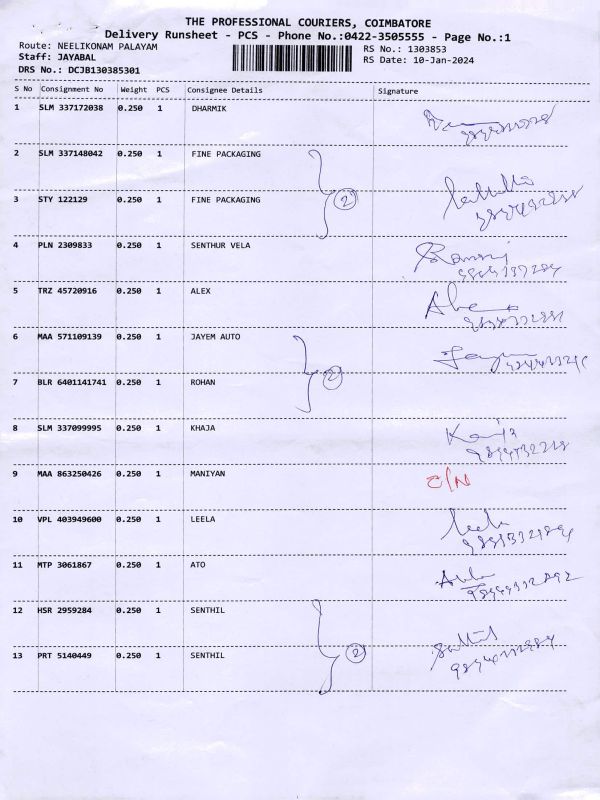 THE PROFESSIONAL COURIERS, COIMBATORE
Delivery Runsheet - PCS - Phone No.:0422-3505555 - Page No.:1
Route: NEELIKONAM PALAYAM
RS No.: 1303853
Staff: JAYABAL
RS Date: 10-Jan-2024
DRS No.: DCJB130385301
S No Consignment No Weight PCS Consignee Details Signature
1 SLM 337172038 0.250 1 DHARMIK
2 SLM 337148042 0.250 1 FINE PACKAGING
2
3 STY 122129 0.250 1 FINE PACKAGING
4 PLN 2309833 0.250 1 SENTHUR VELA
5 TRZ 45720916 0.250 1 ALEX
6 MAA 571109139 0.250 1 JAYEM AUTO
2
7 BLR 6401141741 0.250 1 ROHAN
8 SLM 337099995 0.250 1 KHAJA
9 MAA 863250426 0.250 1 MANIYAN C/N
10 VPL 403949600 0.250 1 LEELA Leela
11 MTP 3061867 0.250 1 ATO
12 HSR 2959284 0.250 1 SENTHIL
2
13 PRT 5140449 0.250 1 SENTHIL